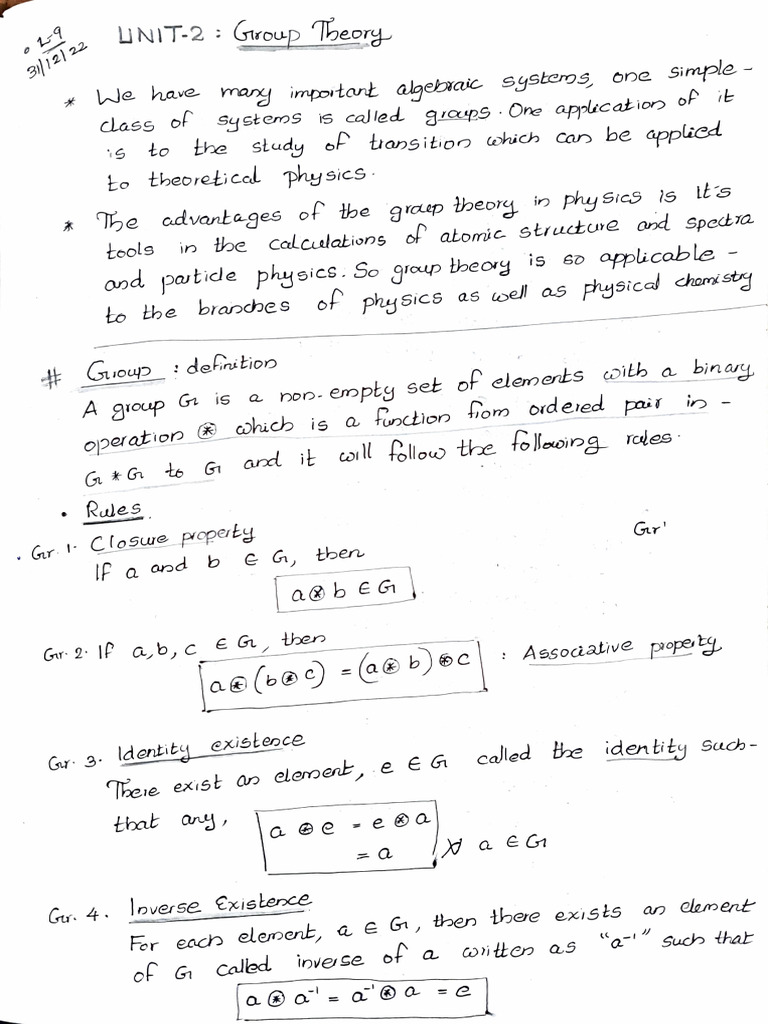 L-9
31/12/22
UNIT-2 : Group Theory
* We have many important algebraic systems, one simple-
class of systems is called groups. One application of it
is to the study of transition which can be applied
to theoretical physics.
* The advantages of the group theory in physics is It's
tools in the calculations of atomic structure and spectra
and particle physics. So group theory is so applicable -
to the branches of physics as well as physical chemistry
# Group : definition
A group G is a non-empty set of elements with a binary
operation ⊛ which is a function from ordered pair in -
G * G to G and it will follow the following rules.
• Rules
. Gr. 1. Closure property
Gr'
If a and b ∈ G, then
a ⊛ b ∈ G
Gr. 2. If a, b, c ∈ G, then
a ⊛ (b ⊛ c) = (a ⊛ b) ⊛ c : Associative property
Gr. 3. Identity existence
There exist an element, e ∈ G called the identity such-
that any, a ⊛ e = e ⊛ a
= a ∀ a ∈ G
Gr. 4. Inverse Existence
For each element, a ∈ G, then there exists an element
of G called inverse of a written as "a⁻¹" such that
a ⊛ a⁻¹ = a⁻¹ ⊛ a = e